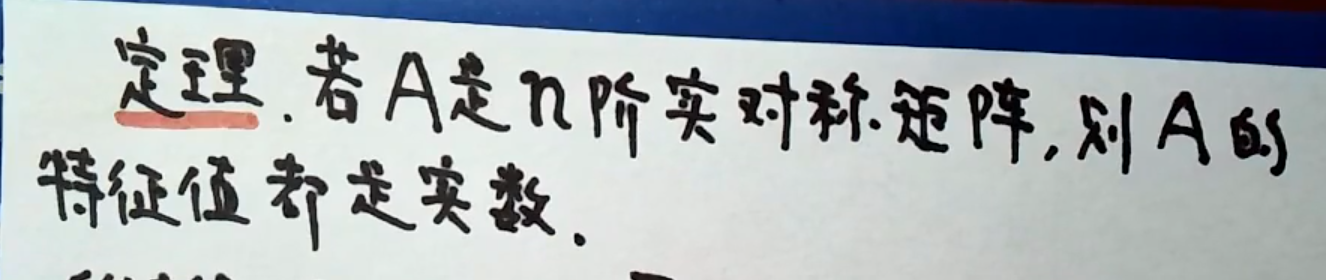 定理.若A是n阶实对称矩阵,则A的
特征值都是实数.